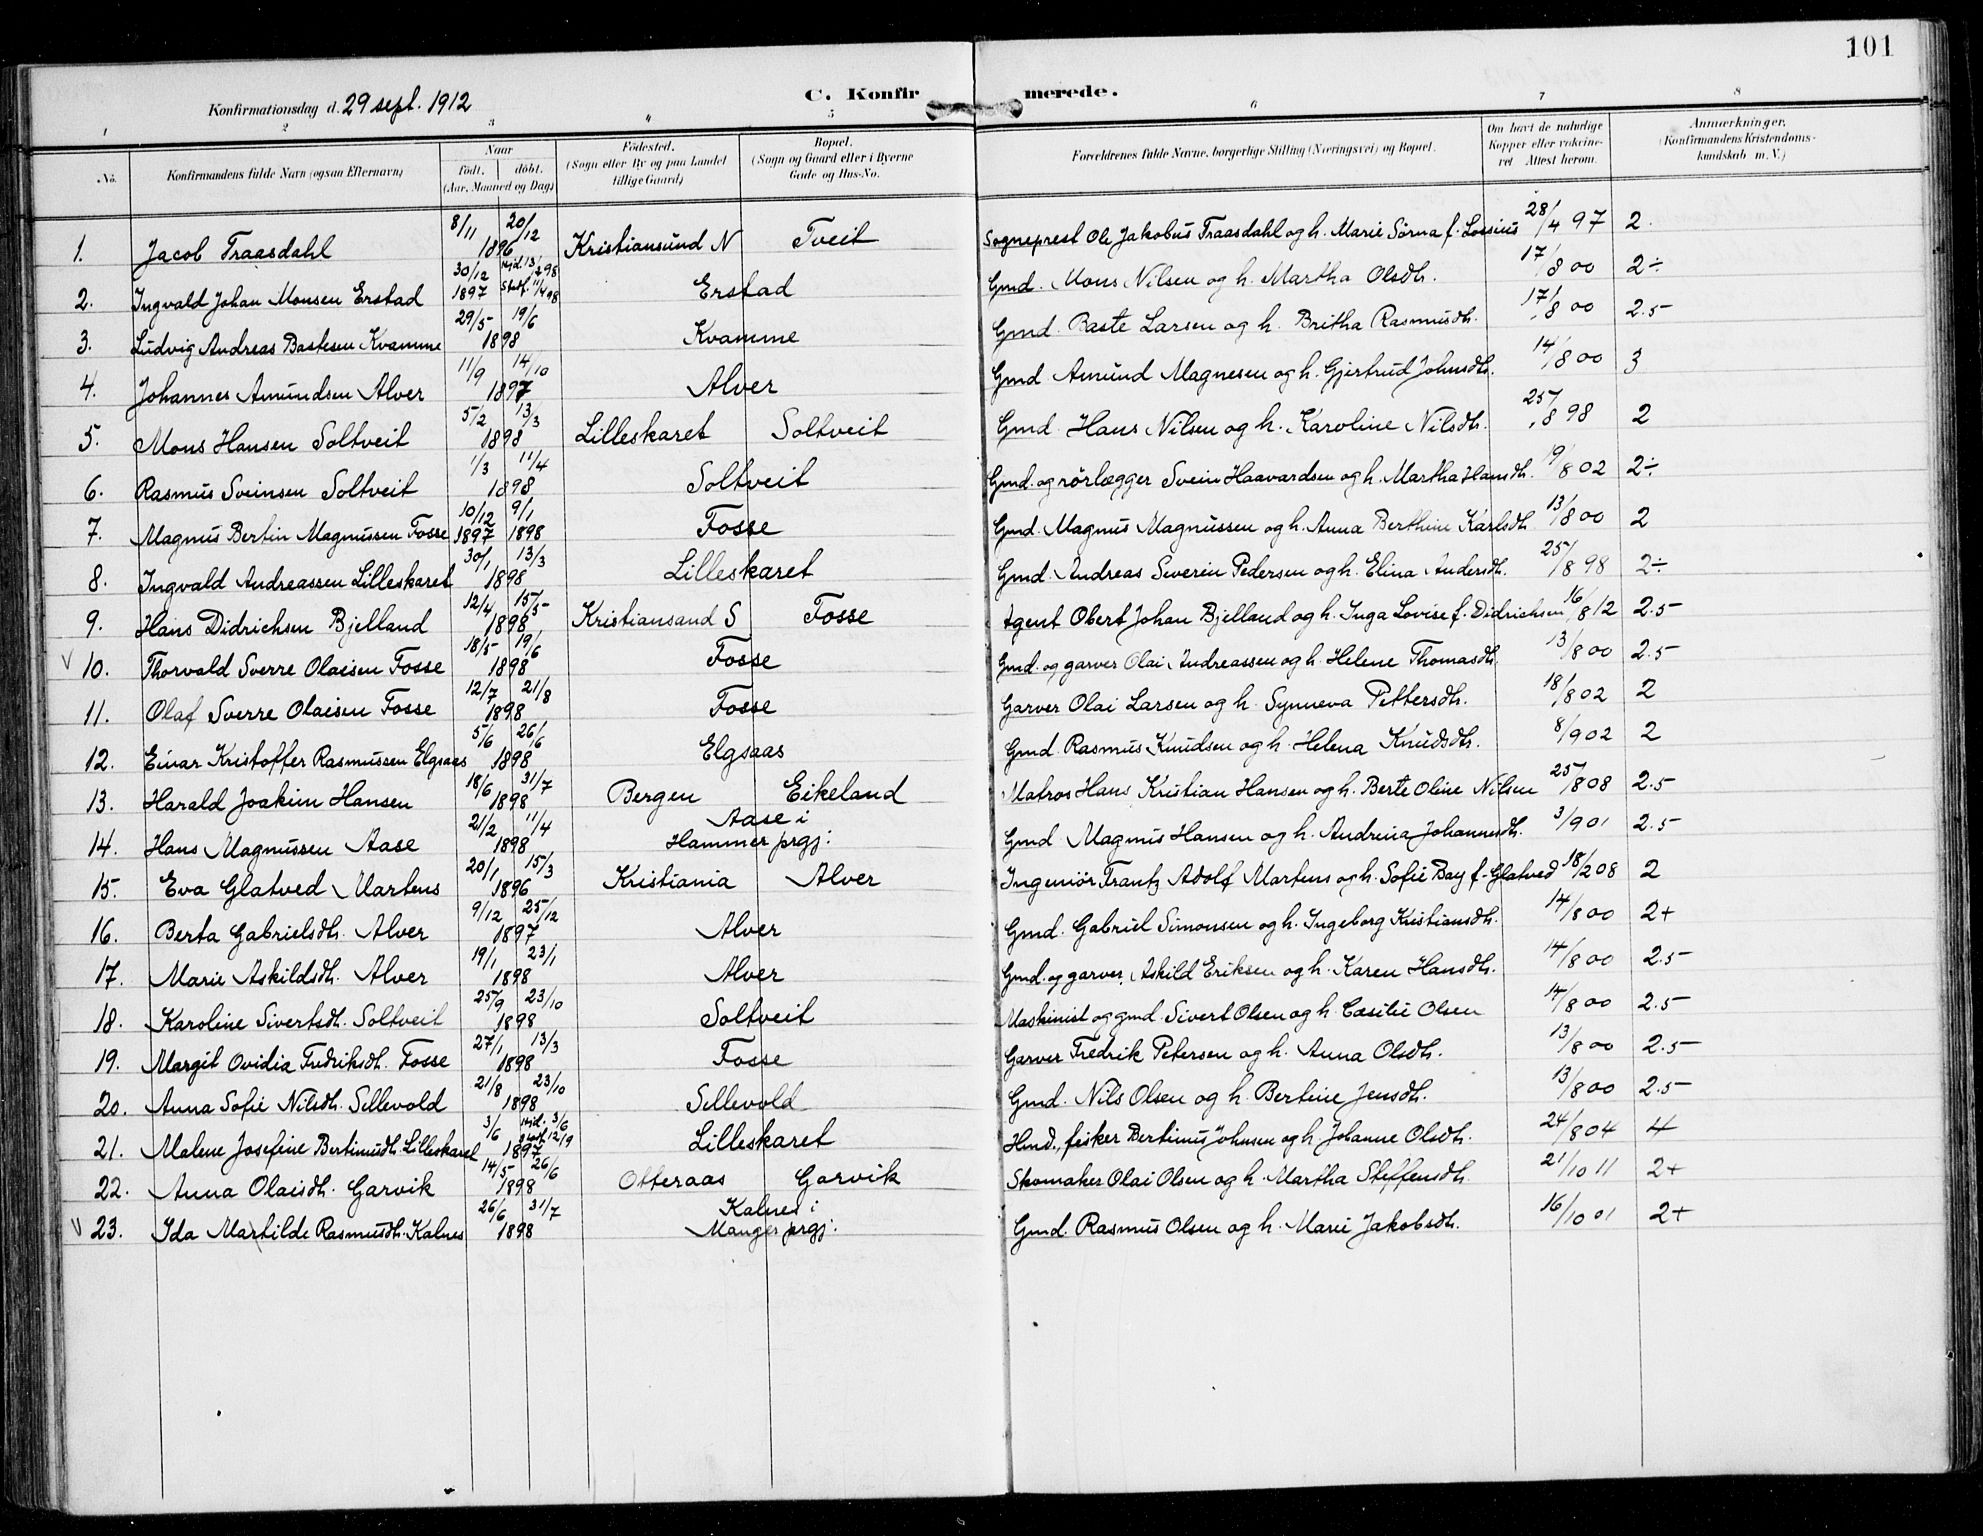 101
Konfirmationsdag d. 29 sept. 1912
C. Konfirmerede.
1 2 3 4 5 6 7 8
No.
Konfirmandens fulde Navn (ogsaa Efternavn)
Naar
født. døbt.
(Aar, Maaned og Dag)
Fødested.
(Sogn eller By og paa Landet
tillige Gaard)
Bopæl.
(Sogn og Gaard eller i Byerne
Gade og Hus-No.
Forældrenes fulde Navne, borgerlige Stilling (Næringsvei) og Bopæl.
Om havt de naturlige
Kopper eller vakcine-
ret Attest herom.
Anmærkninger.
(Konfirmandens Kristendoms-
kundskab m. V.)
1. Jacob Traasdahl 8/11 20/12 1896 Kristiansund N Tveit Sogneprest Ole Jakobus Traasdahl og h. Marie Sørna f. Lossius 28/4 97 2
2. Ingvald Johan Monsen Erstad 30/12 1897 Hjd. 13/2 98 Stadf. 11/4 98 Erstad Gmd. Mons Nilsen og h. Martha Olsdh. 17/8 00 2÷
3. Ludvig Andreas Bastesen Kvamme 29/5 19/6 1898 Kvamme Gmd. Baste Larsen og h. Britha Rasmusdh. 17/8 00 2.5
4. Johannes Amundsen Alver 11/9 14/10 1897 Alver Gmd Amund Magnesen og h. Gjertrud Johnsdh. 14/8 00 3
5. Mons Hansen Soltveit 5/2 13/3 1898 Lilleskaret Soltveit Gmd. Hans Nilsen og h. Karoline Nilsdh. 25/8 98 2
6. Rasmus Sveinsen Soltveit 1/3 11/4 1898 Soltveit Gmd. og rørlægger Svein Haavardsen og h. Martha Hansdh. 9/8 02 2÷
7. Magnus Bertin Magnussen Fosse 10/12 1897 9/1 1898 Fosse Gmd. Magnus Magnussen og h. Anna Berthine Karlsdh 13/8 00 2
8. Ingvald Andreassen Lilleskaret 30/1 13/3 1898 Lilleskaret Gmd. Andreas Severin Pedersen og h. Elina Andersdh. 25/8 98 2÷
9. Hans Didrichsen Bjelland 12/4 15/5 1898 Kristiansand S Fosse Agent Obert Johan Bjelland og h. Inga Lovise f. Didrichsen 16/8 12 2.5
√ 10. Thorvald Sverre Olaisen Fosse 18/5 19/6 1898 Fosse Gmd. og garver Olai Andreassen og h. Helene Thomasdh. 13/8 00 2.5
11. Olaf Sverre Olaisen Fosse 12/7 21/8 1898 Fosse Garver Olai Larsen og h. Synneva Pettersdh. 18/8 02 2
12. Einar Kristoffer Rasmussen Elgsaas 5/6 26/6 1898 Elgsaas Gmd. Rasmus Knudsen og h. Helena Knudsdh. 8/9 02 2
13. Harald Joakim Hansen 18/6 31/7 1898 Bergen Eikeland Matros Hans Kristian Hansen og h. Berte Oline Nilsen 25/8 08 2.5
14. Hans Magnussen Aase 21/2 11/4 1898 Aase i Hammer prgj: Gmd Magnus Hansen og h. Andrina Johannesdh. 3/9 01 2.5
15. Eva Glatved Martens 20/1 15/3 1896 Kristiania Alver Ingeniør Frantz Adolf Martens og h. Sofie Bay f. Glatved 18/2 08 2
16. Berta Gabrielsdh. Alver 9/12 25/12 1897 Alver Gmd. Gabriel Simonsen og h. Ingeborg Kristiansdh. 14/8 00 2+
17. Marie Askildsdh. Alver 19/1 23/1 1898 Alver Gmd. og garver Askild Eriksen og h. Karen Hansdh. 14/8 00 2.5
18. Karoline Sivertsdh. Soltveit 25/9 23/10 1898 Soltveit Maskinist og gmd. Sivert Olsen og h. Cæsilie Olsen 14/8 00 2.5
19. Margit Ovidia Fredriksdh. Fosse 27/1 13/3 1898 Fosse Garver Fredrik Petersen og h. Anna Olsdh. 13/8 00 2.5
20. Anna Sofie Nilsdh. Sellevold 21/8 23/10 1898 Sellevold Gmd. Nils Olsen og h. Bertine Jensdh. 13/8 00 2.5
21. Malene Josefine Bertinusdh. Lilleskaret 3/6 Hjd. 3/6 Stadf. 12/9 1897 Lilleskaret Hmd., fisker Bertinus Johnsen og h. Johanne Olsdh. 24/8 04 4
22. Anna Olaisdh. Garvik 14/5 26/6 1898 Otteraas Garvik Skomaker Olai Olsen og h. Martha Steffensdh. 21/10 11 2+
√ 23. Ida Martilde Rasmusdh. Kalnes 26/6 31/7 1898 Kalnes i Manger prgj: Gmd. Rasmus Olsen og h. Marie Jakobsdh. 16/10 01 2+